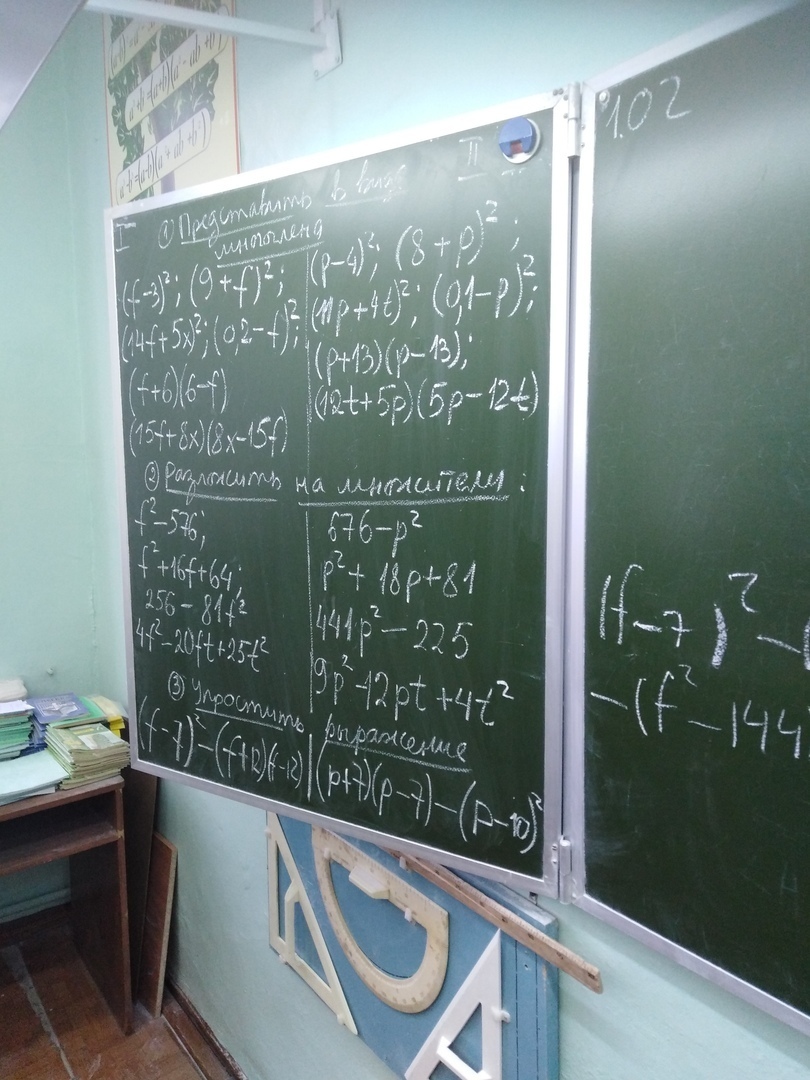 a³+b³=(a+b)(a²-ab+b²)
a³-b³=(a-b)(a²+ab+b²)
I
① Представить в виде
многочлена
(f-3)²; (9+f)²;
(14f+5x)²; (0,2-f)²;
(f+6)(6-f)
(15f+8x)(8x-15f)
II
(p-4)²; (8+p)²;
(11p+4t)²; (0,1-p)²;
(p+13)(p-13);
(12t+5p)(5p-12t)
② Разложить на множители:
f²-576;
f²+16f+64;
256-81f²
4f²-20ft+25t²
676-p²
p²+18p+81
441p²-225
9p²-12pt+4t²
③ Упростить выражение
(f-7)²-(f+12)(f-12)
(p+7)(p-7)-(p-10)²
1.02
(f-7)²-(
-(f²-144